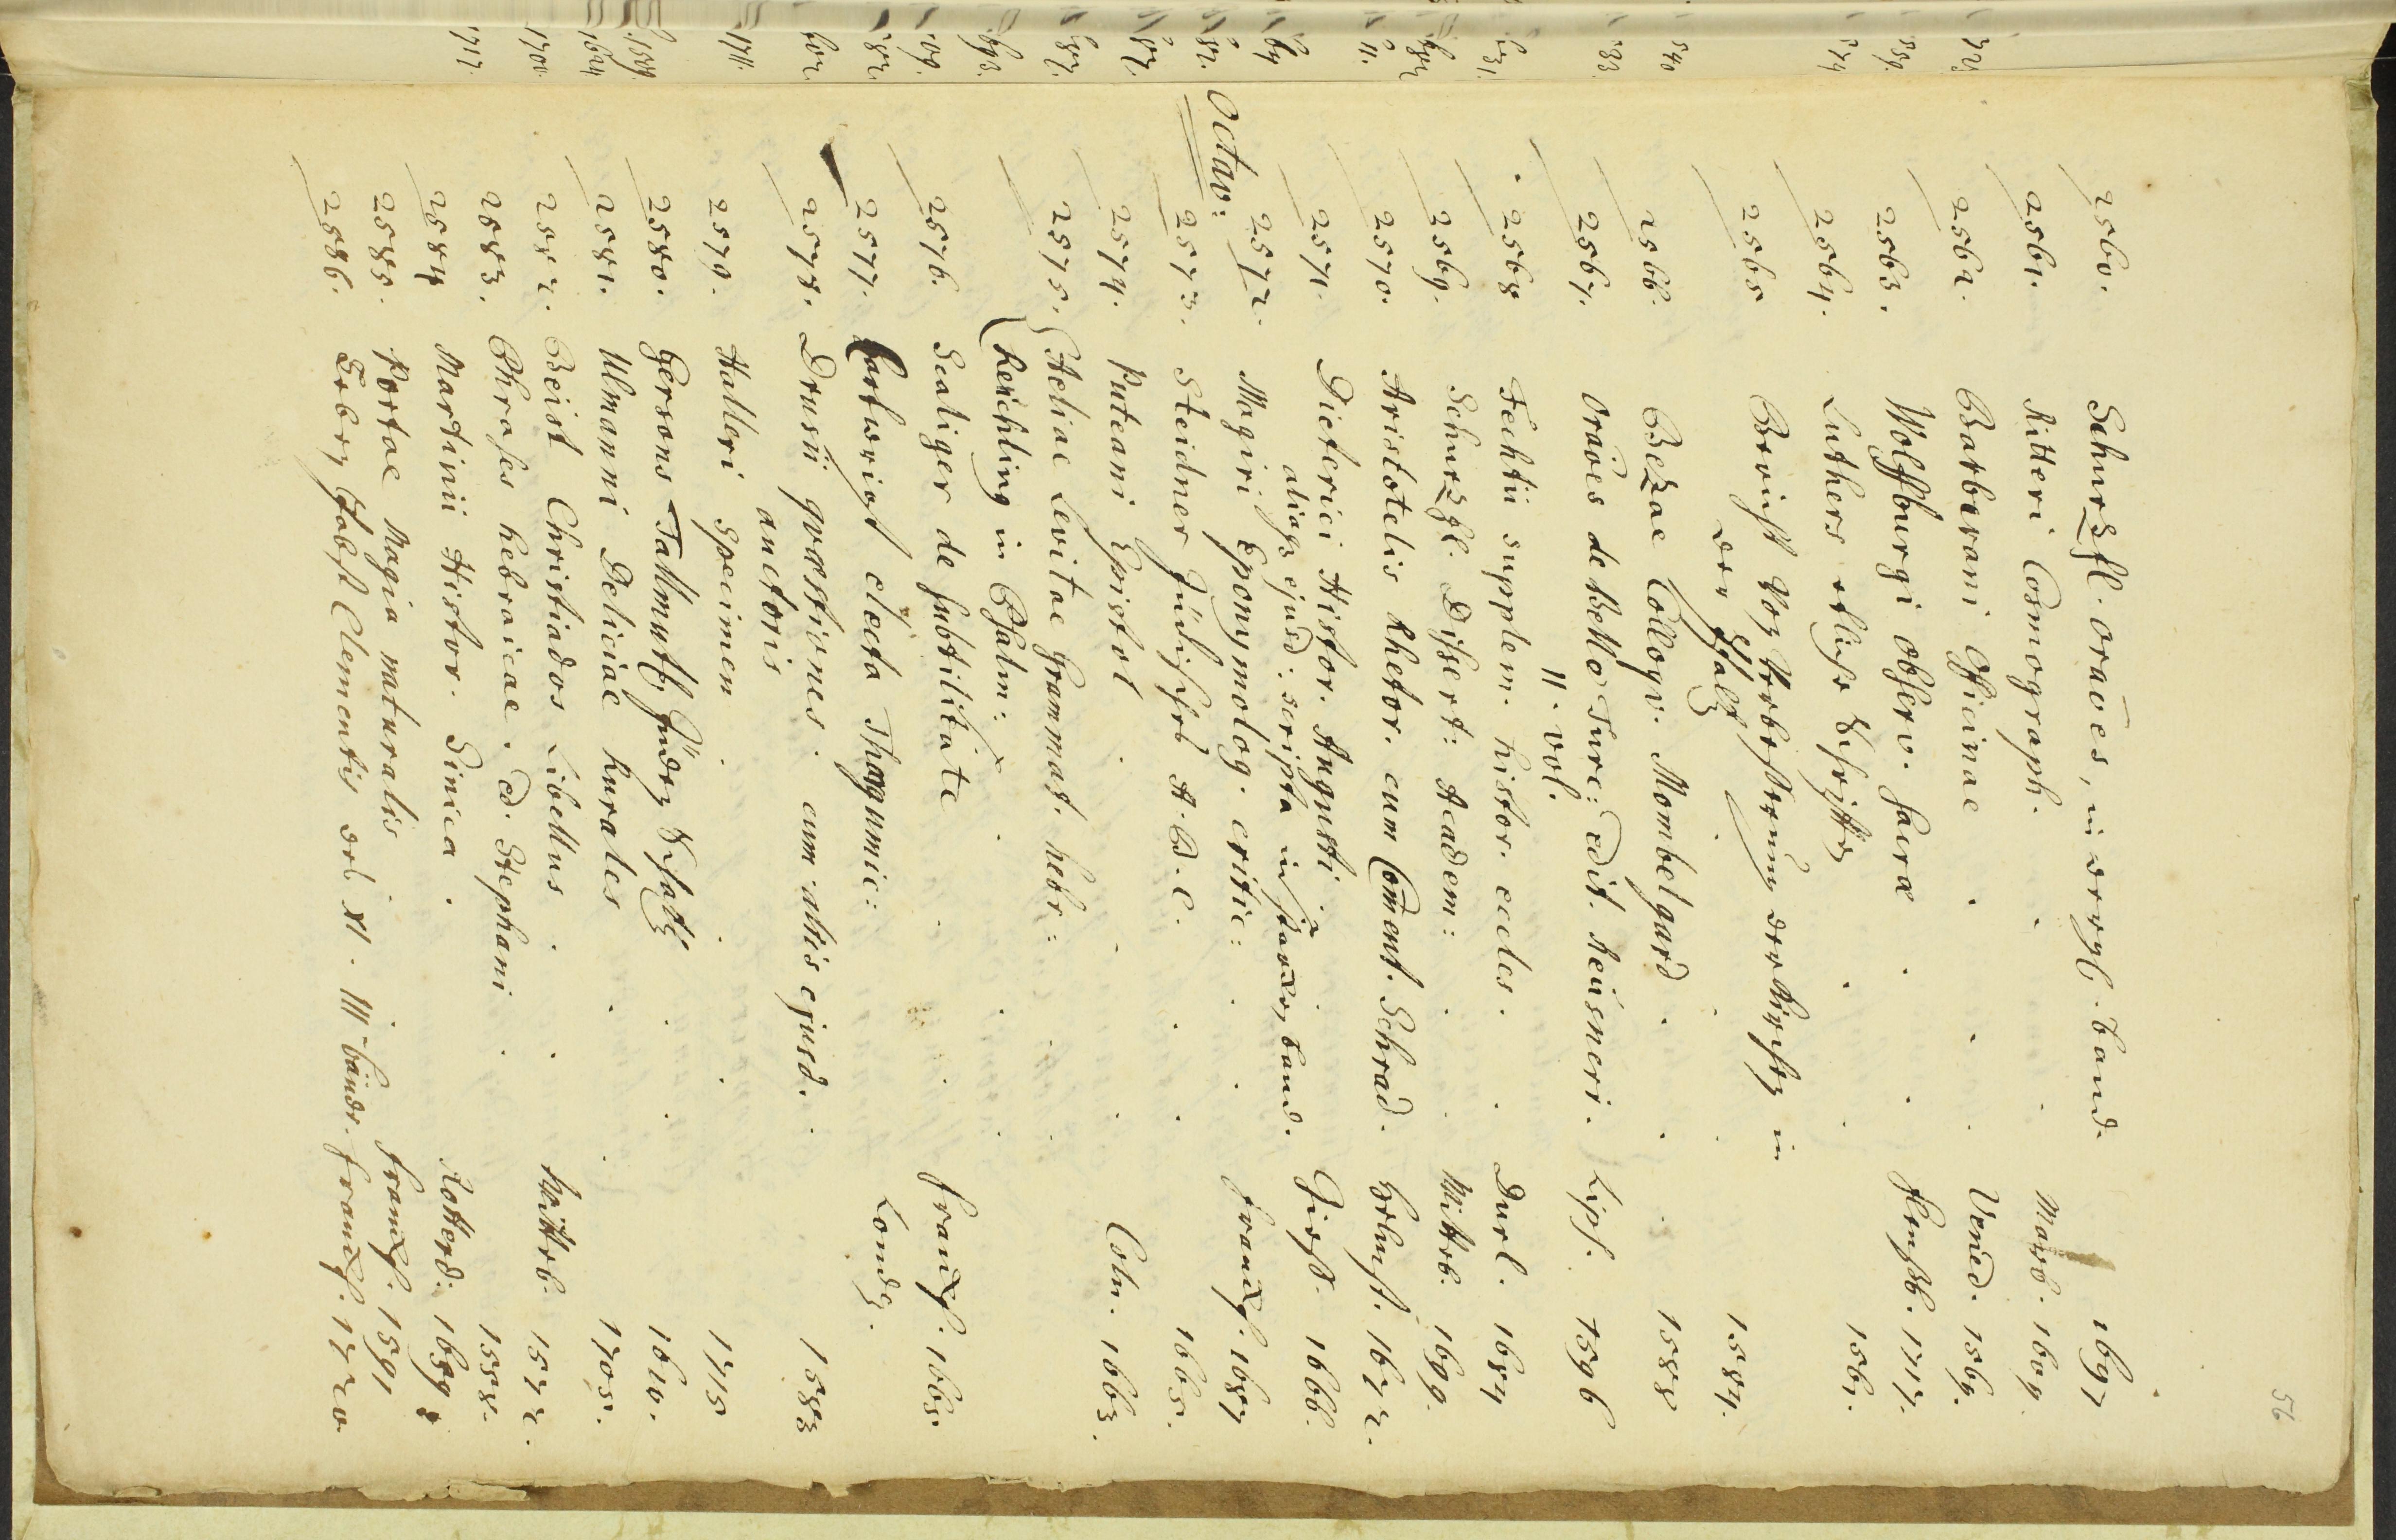 56
2560. Schurzfl. orāōes, in vergl. band. 1697
2561. Ritteri Cosmograph. Marb. 1609.
2562. Barbarani Officinae Vened. 1569.
2563. Wolffburgi observ. sacrae Flensb. 1717.
2564. Luthers etliche Schrifften 1561.
2565 Bericht von Verbesserung der Kirchen in
der Pfaltz 1584.
2566. Bezae Colloqv. Mombelgard 1588
2567. Orāōes de Bello Turc: Edit. Reusneri. Lips. 1596
II. vol.
2568 Fechtii supplem. histor. eccles. Durl. 1684
2569. Schurzfl. Dissert: Academ: Witteb. 1699.
2570. Aristotelis Rhetor. cum Com̄ent. Schrad. Helmst. 1672.
2571. Dieterici Histor. Augusti Giess. 1666.
2572. Magiri Eponymolog. critic: Franckf. 1687
aliaqs ejusd: scripta in starcken band.
Octav:
2573. Steidner Jüdisches A.B.C. 1665.
2574. Puteani Epistol Coln. 1663.
2575. Aeliae Levitae Grammat. hebr:
Reuchling in Psalm:
2576. Scaliger de subtilitate Franckf. 1665.
2577. Cartwrigt electa Thargumic: Londen.
2578. Drusii qvaestiones. cum aliis ejusd. 1583
auctoris
2579. Halleri Specimen 1715
2580. Gersons Tallmuth Jüden Schatz 1610.
2581. Ulmanni Deliciae hurales 1705.
2582. Beist Christiados Libellus Witteb. 1572.
2583. Phrases hebraicae. Ed. Stephani 1558.
2584 Martinii Histor. Sinica. Rotterd. 1659
2585. Portae Magia naturalis Franckf. 1591
2586. Leben Pabst Clementis des XI. III bände. Franckf. 1720